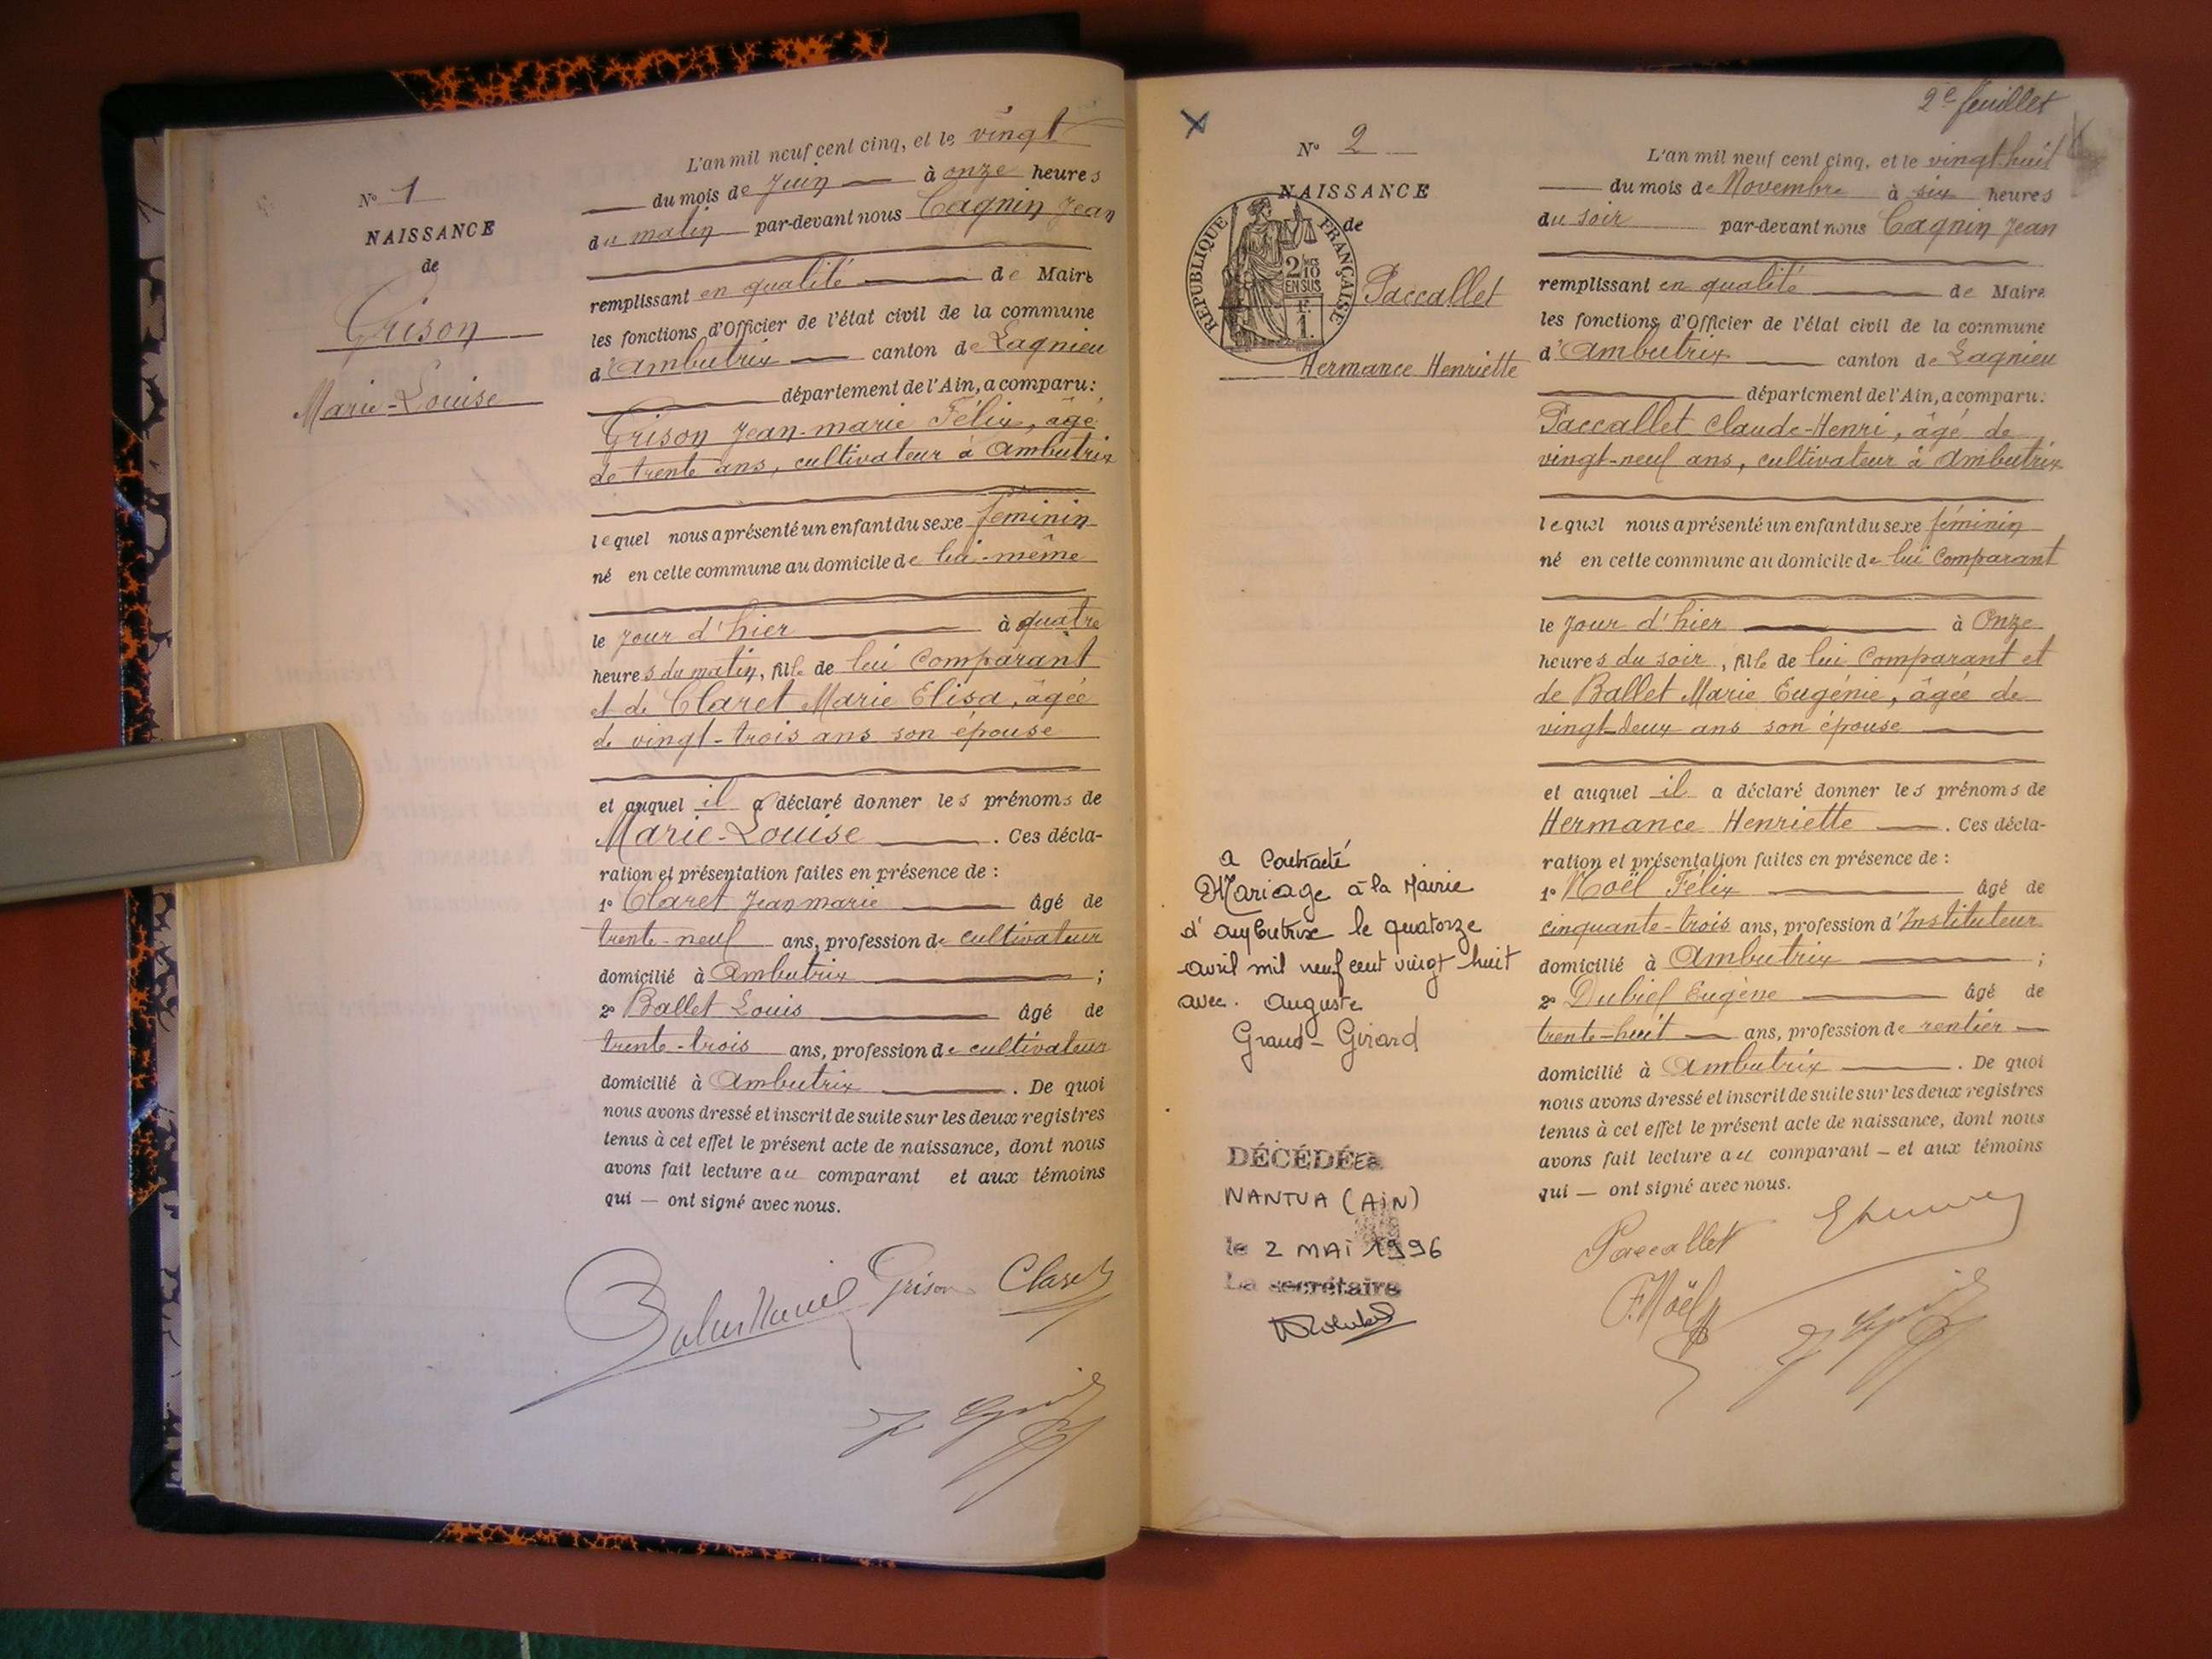 N° 1
NAISSANCE
de
Grison
Marie-Louise
L'an mil neuf cent cinq, et le vingt
du mois de Juin à onze heures
du matin par-devant nous Cagnin Jean
remplissant en qualité de Maire
les fonctions d'Officier de l'état civil de la commune
d'Ambutrix canton de Lagnieu
département de l'Ain, a comparu:
Grison Jean-marie Félix, âgé
de trente ans, cultivateur à Ambutrix
lequel nous a présenté un enfant du sexe féminin
né en cette commune au domicile de lui-même
le jour d'hier à quatre
heures du matin, fille de lui Comparant
et de Claret Marie Elisa, âgée
de vingt-trois ans son épouse
et auquel il a déclaré donner les prénoms de
Marie-Louise. Ces décla-
ration et présentation faites en présence de :
1° Claret Jean marie âgé de
trente-neuf ans, profession de cultivateur
domicilié à Ambutrix ;
2° Ballet Louis âgé de
trente-trois ans, profession de cultivateur
domicilié à Ambutrix. De quoi
nous avons dressé et inscrit de suite sur les deux registres
tenus à cet effet le présent acte de naissance, dont nous
avons fait lecture au comparant et aux témoins
qui — ont signé avec nous.
Grison Claret
2e feuillet
N° 2
NAISSANCE
de
REPUBLIQUE FRANÇAISE
2/10
EN SUS
1.
Paccallet
Hermance Henriette
L'an mil neuf cent cinq, et le vingt-huit
du mois de Novembre à six heures
du soir par-devant nous Cagnin Jean
remplissant en qualité de Maire
les fonctions d'Officier de l'état civil de la commune
d'Ambutrix canton de Lagnieu
département de l'Ain, a comparu:
Paccallet Claude-Henri, âgé de
vingt-neuf ans, cultivateur à Ambutrix
lequel nous a présenté un enfant du sexe féminin
né en cette commune au domicile de lui Comparant
le jour d'hier à Onze
heures du soir, fille de lui Comparant et
de Ballet Marie Eugénie, âgée de
vingt-deux ans son épouse
et auquel il a déclaré donner les prénoms de
Hermance Henriette. Ces décla-
ration et présentation faites en présence de :
1° Noël Félix âgé de
cinquante-trois ans, profession d'Instituteur
domicilié à Ambutrix ;
2° Dubief Eugène âgé de
trente-huit ans, profession de rentier
domicilié à Ambutrix. De quoi
nous avons dressé et inscrit de suite sur les deux registres
tenus à cet effet le présent acte de naissance, dont nous
avons fait lecture au comparant — et aux témoins
qui — ont signé avec nous.
Paccallet
F. Noël
a Contracté
Mariage à la Mairie
d'Ambutrix le quatorze
avril mil neuf cent vingt huit
avec. Auguste
Grand-Girard
DÉCÉDÉE à
NANTUA (AIN)
le 2 MAI 1996
La secrétaire